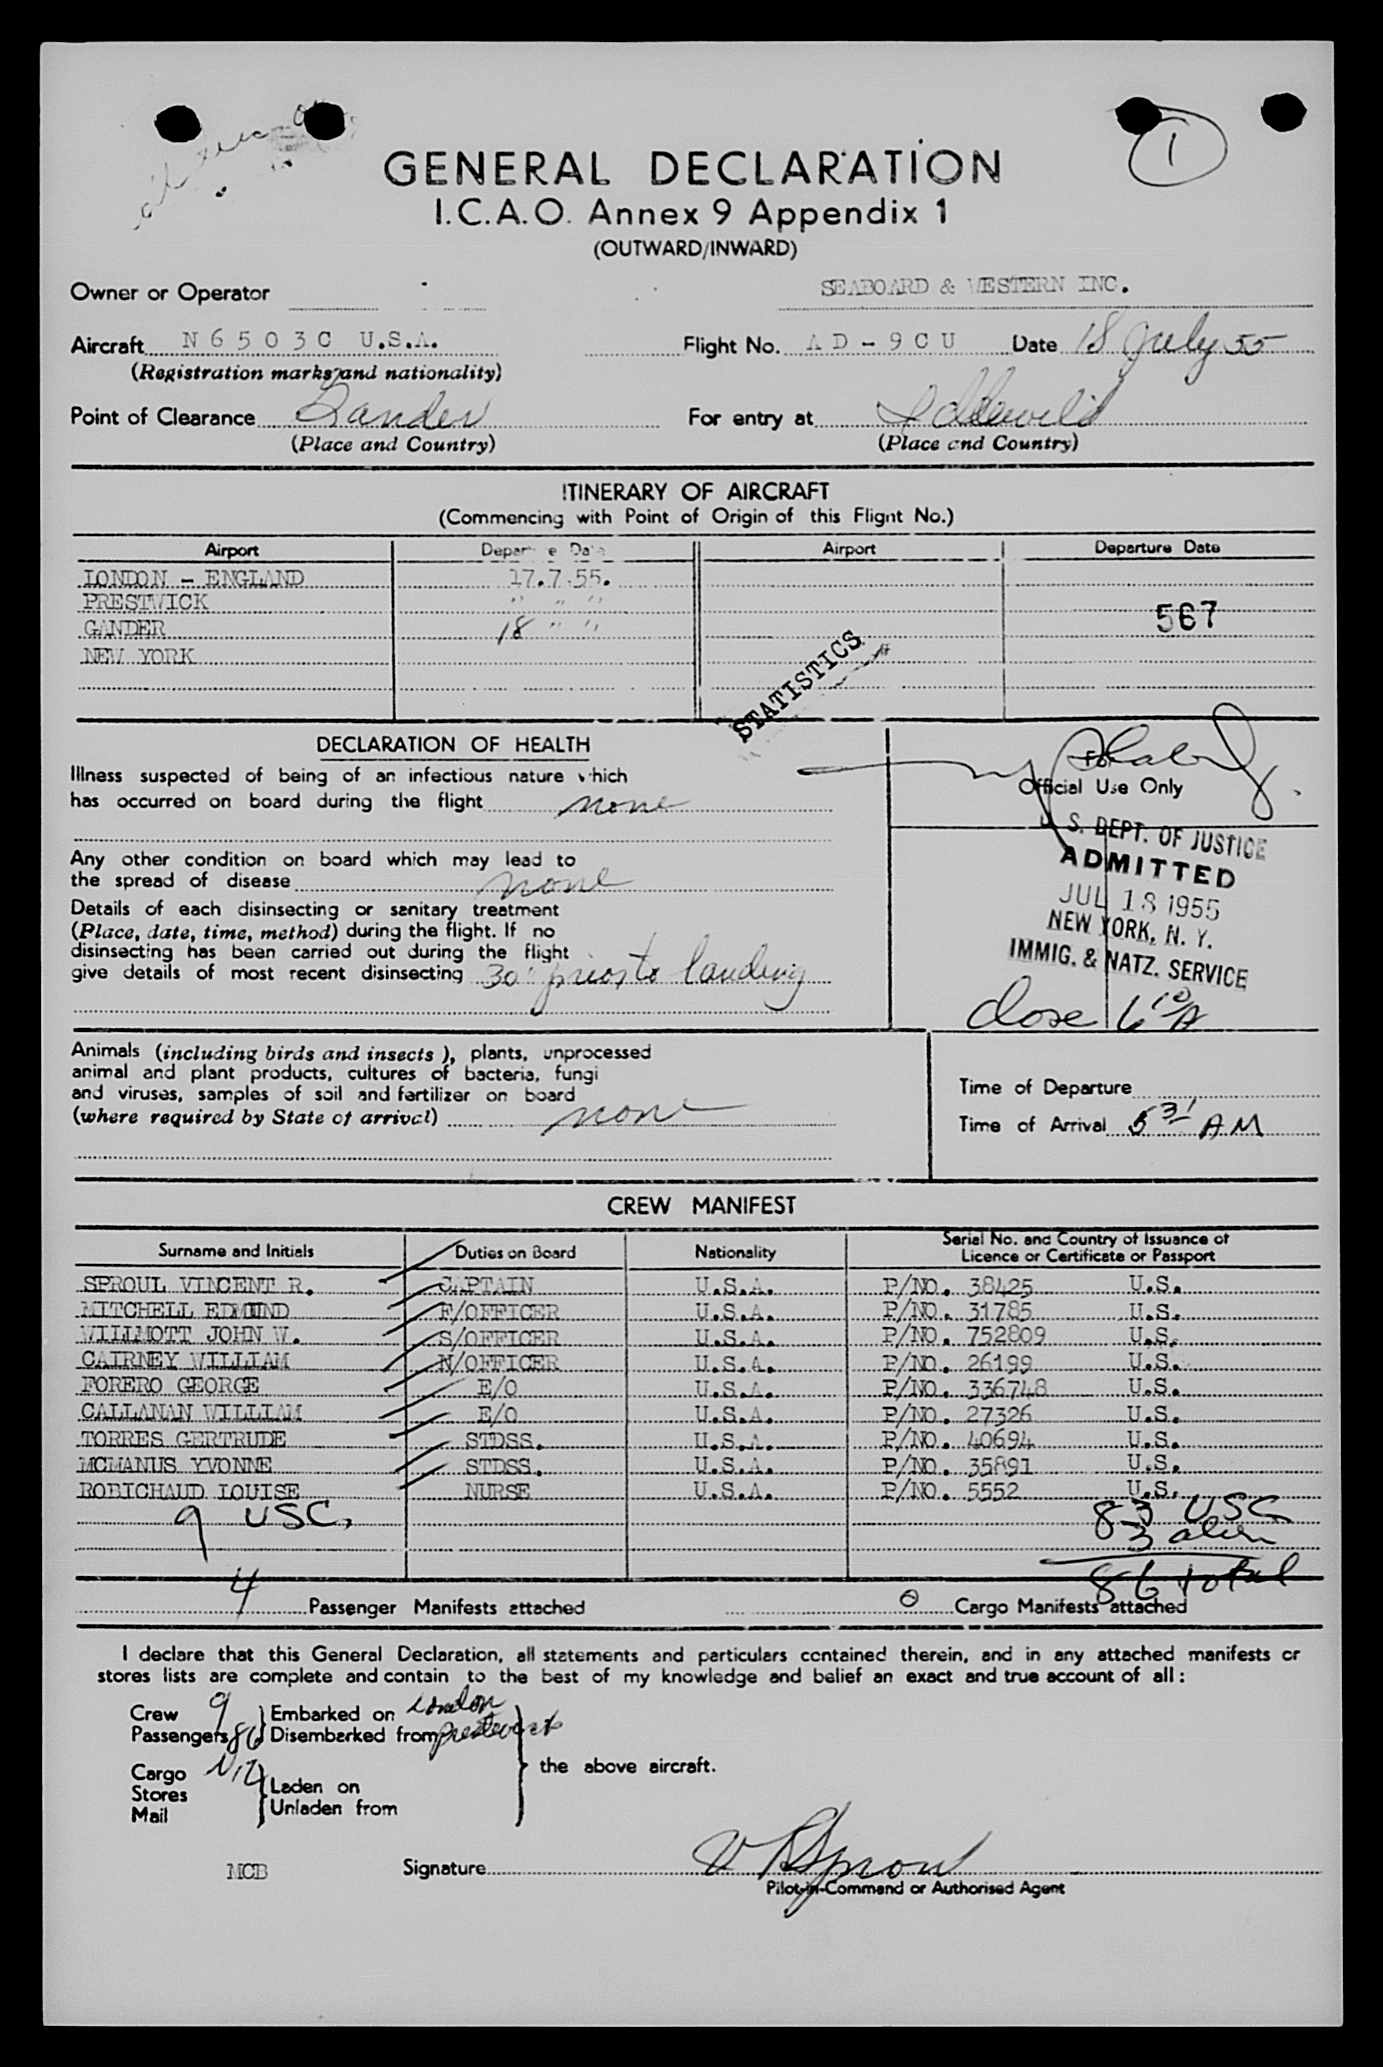 1
GENERAL DECLARATION
I.C.A.O. Annex 9 Appendix 1
(OUTWARD/INWARD)
Owner or Operator SEABOARD & WESTERN INC.
Aircraft N 6 5 0 3 C U.S.A. Flight No. A D - 9 C U Date 18 July 55
(Registration marks and nationality)
Point of Clearance Gander For entry at Idlewild
(Place and Country) (Place and Country)
ITINERARY OF AIRCRAFT
(Commencing with Point of Origin of this Flight No.)
Airport Departure Date Airport Departure Date
LONDON - ENGLAND 17.7.55.
PRESTWICK " " "
GANDER 18 " "
567
NEW YORK
STATISTICS
DECLARATION OF HEALTH
For
Official Use Only
Illness suspected of being of an infectious nature which
has occurred on board during the flight none
Any other condition on board which may lead to
the spread of disease none
Details of each disinsecting or sanitary treatment
(Place, date, time, method) during the flight. If no
disinsecting has been carried out during the flight
give details of most recent disinsecting 30' prior to landing
U. S. DEPT. OF JUSTICE
ADMITTED
JUL 18 1955
NEW YORK, N. Y.
IMMIG. & NATZ. SERVICE
close 6 10 A
Animals (including birds and insects ), plants, unprocessed
animal and plant products, cultures of bacteria, fungi
and viruses, samples of soil and fertilizer on board
(where required by State of arrival) none
Time of Departure
Time of Arrival 5 31 AM
CREW MANIFEST
Surname and Initials Duties on Board Nationality Serial No. and Country of Issuance of Licence or Certificate or Passport
SPROUL VINCENT R. CAPTAIN U.S.A. P/NO. 38425 U.S.
MITCHELL EDMUND F/OFFICER U.S.A. P/NO. 31785 U.S.
WILLMOTT JOHN W. S/OFFICER U.S.A. P/NO. 752809 U.S.
CAIRNEY WILLIAM N/OFFICER U.S.A. P/NO. 26199 U.S.
FORERO GEORGE E/O U.S.A. P/NO. 336748 U.S.
CALLANAN WILLIAM E/O U.S.A. P/NO. 27326 U.S.
TORRES GERTRUDE STDSS. U.S.A. P/NO. 40694 U.S.
MCMANUS YVONNE STDSS. U.S.A. P/NO. 35891 U.S.
ROBICHAUD LOUISE NURSE U.S.A. P/NO. 5552 U.S.
9 USC, 83 USC
3 alien
86 total
4 Passenger Manifests attached 0 Cargo Manifests attached
I declare that this General Declaration, all statements and particulars contained therein, and in any attached manifests or
stores lists are complete and contain to the best of my knowledge and belief an exact and true account of all :
Crew 9 Embarked on London
Passengers 86 Disembarked from Prestwick
the above aircraft.
Cargo Nil
Stores Laden on
Mail Unladen from
MCB Signature V R Sproul
Pilot-in-Command or Authorised Agent